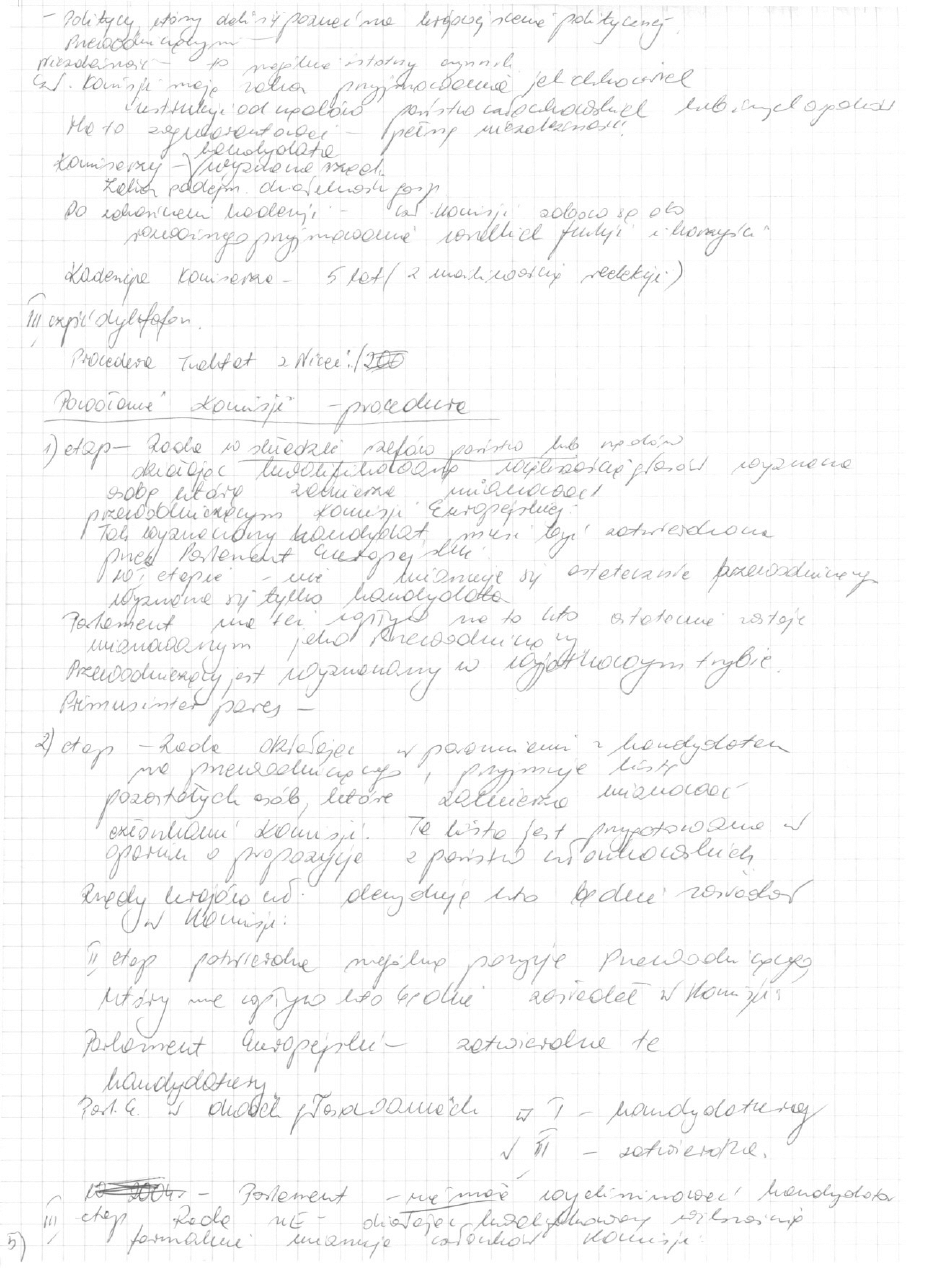 - Politycy, którzy dali się poznać na krajowej scenie politycznej.
Przewodniczącym -
Niezależność - to szczególnie istotny czynnik
Czł. Komisji mają zakaz przyjmowania jakichkolwiek
instrukcji od rządów państw członkowskich lub innych
Ma to zagwarantować - pełną niezależność.
kandydata
Komisarzy - wyznacza rząd.
Zakaz podejm. działalności gosp
Po zakończeniu kadencji - czł. Komisji zobow. są do
rozważnego przyjmowania wszelkich funkcji i korzyści
Kadencja Komisarza - 5 lat (z możliwością reelekcji)
III część dyktafon.
Procedura Traktat z Nicei /200
Powołanie Komisji - procedura
1) etap - Rada w składzie szefów państw lub rządów
działając kwalifikowaną większością głosów wyznacza
osobę którą zamierza mianować
przewodniczącym Komisji Europejskiej.
Tak wyznaczony kandydat musi być zatwierdzona
przez Parlament Europejski.
W I etapie - nie mianuje się ostatecznie przewodniczącego
wyznacza się tylko kandydata
Parlament ma też wpływ na to kto ostatecznie zostaje
mianowanym jako Przewodniczący
Przewodniczący jest wyznaczany w wyjątkowym trybie.
Primus inter pares -
2) etap - Rada działając w porozumieniu z kandydatem
na przewodniczącego, przyjmuje listę
pozostałych osób, które zamierza mianować
członkami Komisji. Ta lista jest przygotowana w
oparciu o propozycje z państw członkowskich
Rządy krajów czł. decydują kto będzie zasiadał
w Komisji.
II etap potwierdza szczególną pozycję Przewodniczącego
który ma wpływ kto będzie zasiadał w Komisji
Parlament Europejski - zatwierdza te
kandydatury
Parl. E. w dwóch głosowaniach w I - kandydaturę
w II - zatwierdza.
2004r - Parlament - nie może wyeliminować kandydata
III etap Rada UE - działając kwalifikowaną większością
5) formalnie mianuje członków Komisji.